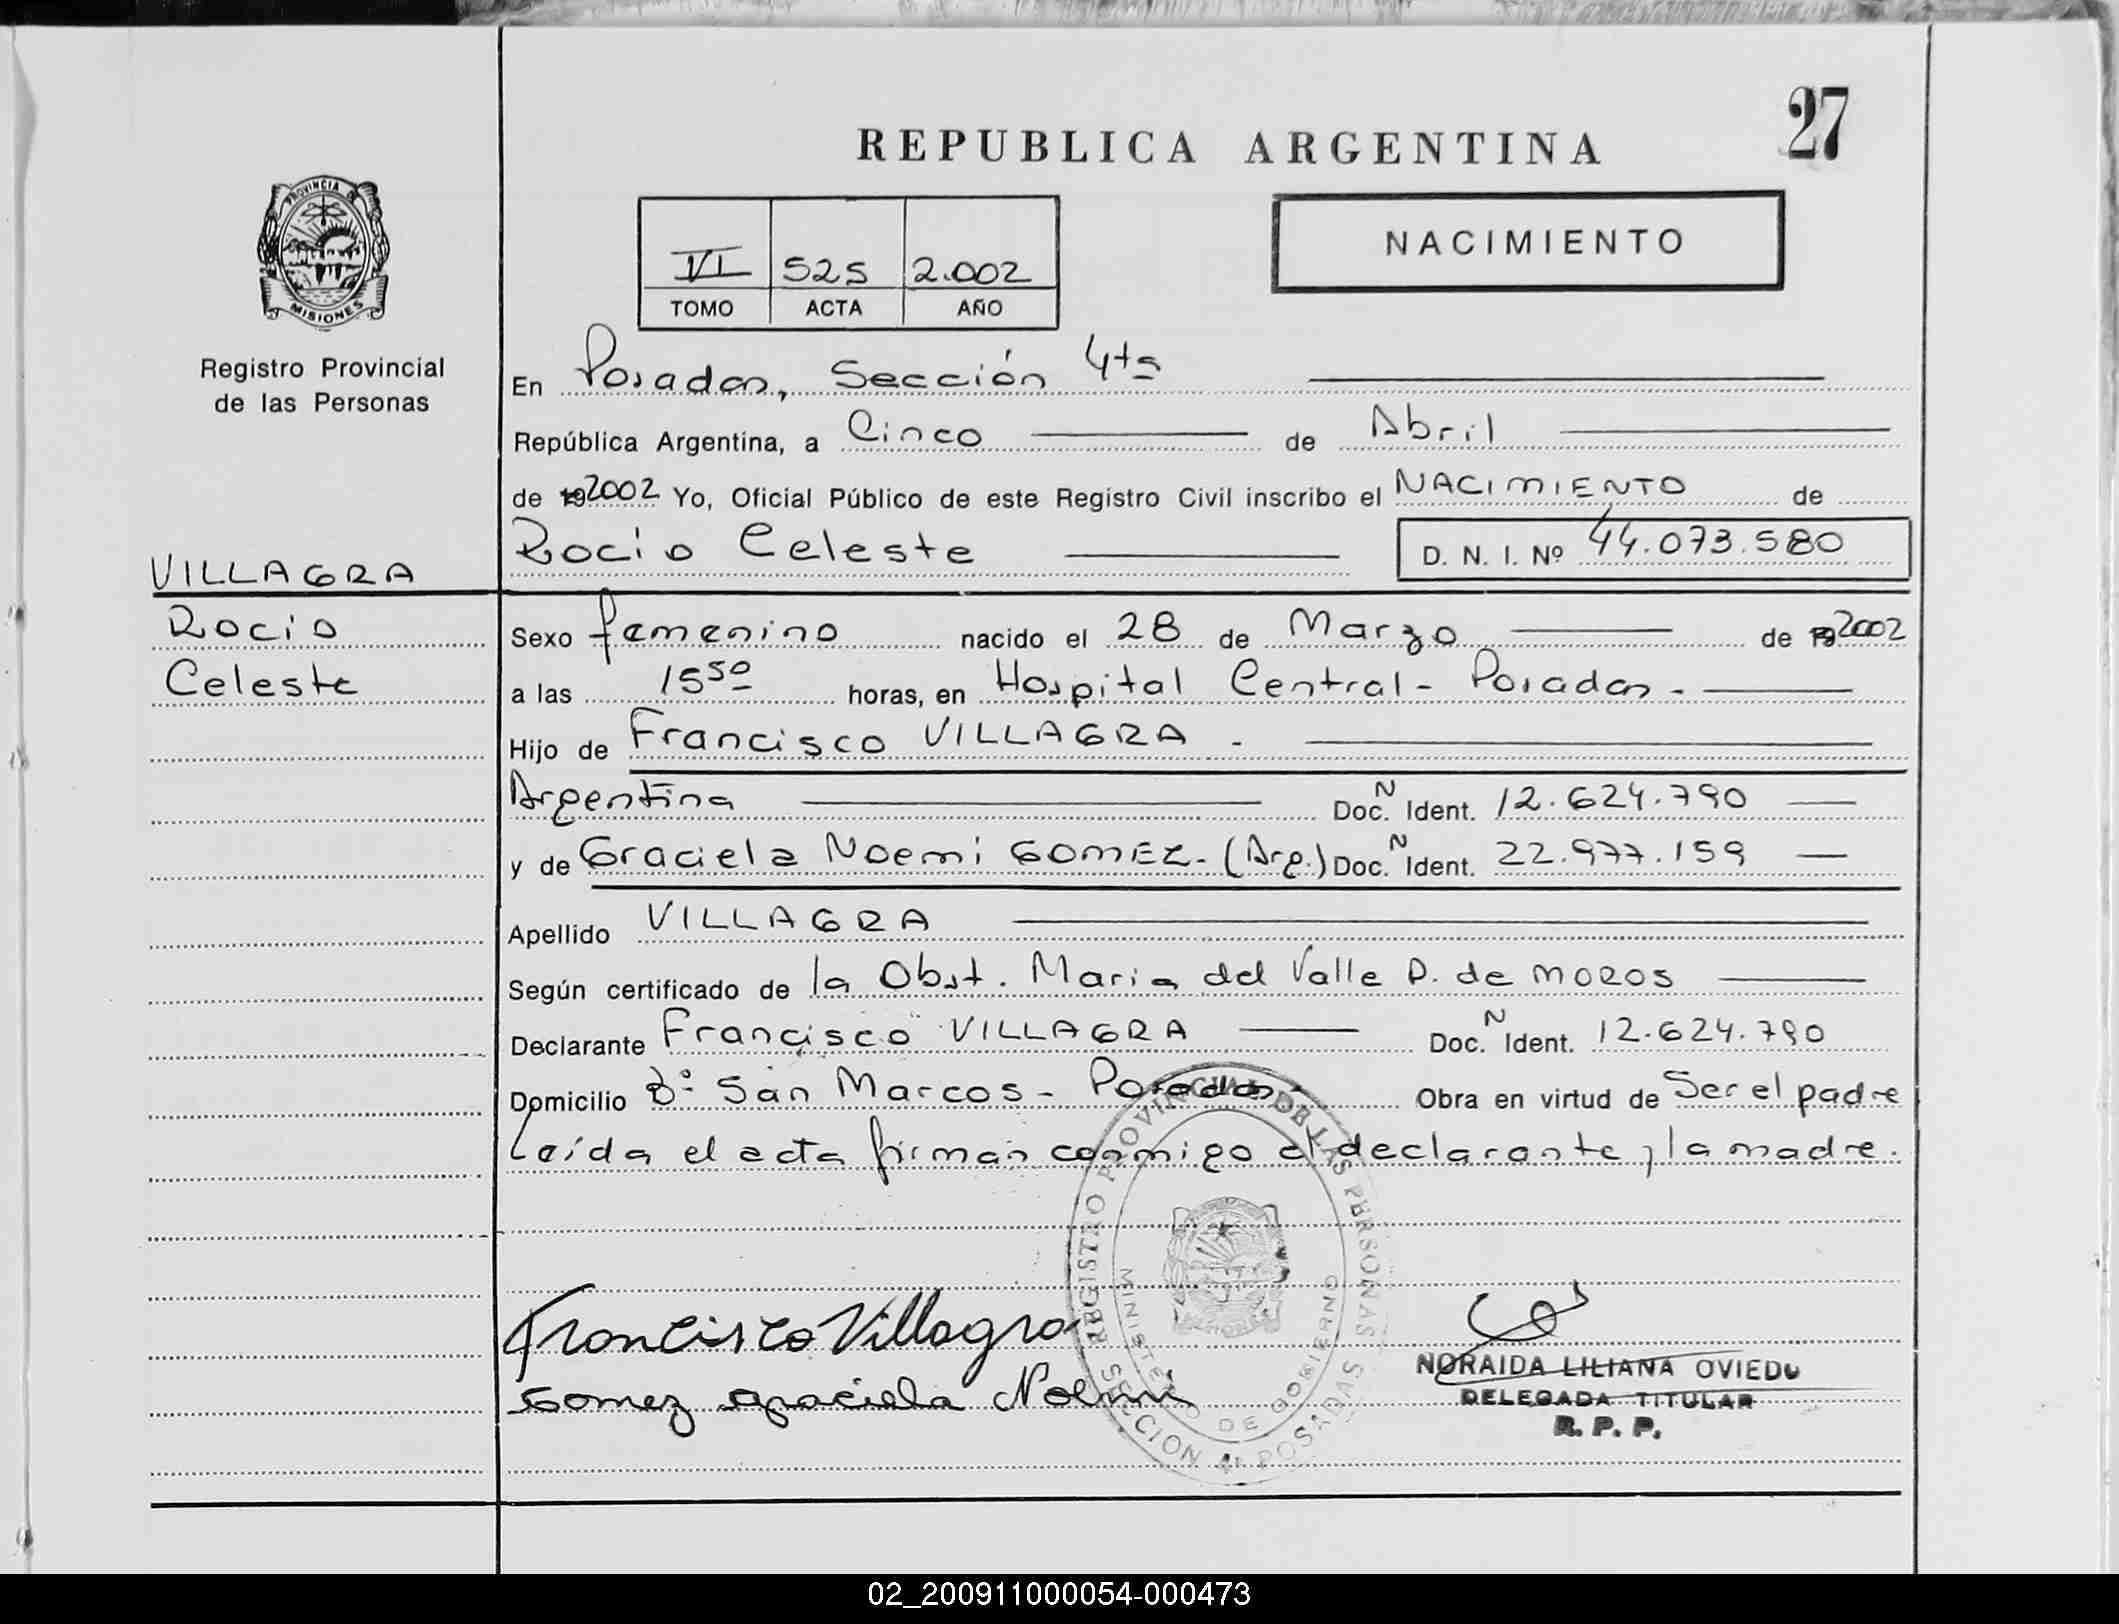 27
REPUBLICA ARGENTINA
PROVINCIA DE
MISIONES
NACIMIENTO
VI 525 2.002
TOMO ACTA AÑO
Registro Provincial
de las Personas
En Posadas, Sección 4ta
República Argentina, a Cinco de Abril
de 192002 Yo, Oficial Público de este Registro Civil inscribo el NACIMIENTO de
Rocio Celeste D. N. I. Nº 44.073.580
VILLAGRA
Rocio
Celeste
Sexo femenino nacido el 28 de Marzo de 192002
a las 15 50 horas, en Hospital Central - Posadas -
Hijo de Francisco VILLAGRA -
Argentina Doc. N Ident. 12.624.790
y de Graciela Noemi GOMEZ - (Arg.) Doc. N Ident. 22.977.159
Apellido VILLAGRA
Según certificado de la Obst. Maria del Valle P. de MOROS
Declarante Francisco VILLAGRA Doc. N Ident. 12.624.790
Domicilio Bº San Marcos - Posadas Obra en virtud de Ser el padre
Leída el acta firman conmigo el declarante y la madre.
REGISTRO PROVINCIAL DE LAS PERSONAS
MINISTERIO DE GOBIERNO
SECCION 4ª POSADAS
Francisco Villagra
Gomez Graciela Noemi
NORAIDA LILIANA OVIEDO
DELEGADA TITULAR
R. P. P.
02_200911000054-000473